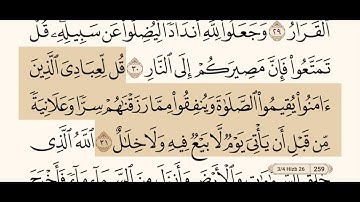 ٱلْقَرَارُ ٢٩ وَجَعَلُوا۟ لِلَّهِ أَندَادًا لِّيُضِلُّوا۟ عَن سَبِيلِهِۦ ۗ قُلْ
تَمَتَّعُوا۟ فَإِنَّ مَصِيرَكُمْ إِلَى ٱلنَّارِ ٣٠ قُل لِّعِبَادِىَ ٱلَّذِينَ
ءَامَنُوا۟ يُقِيمُوا۟ ٱلصَّلَوٰةَ وَيُنفِقُوا۟ مِمَّا رَزَقْنَٰهُمْ سِرًّا وَعَلَانِيَةً
مِّن قَبْلِ أَن يَأْتِىَ يَوْمٌ لَّا بَيْعٌ فِيهِ وَلَا خِلَٰلٌ ٣١ ٱللَّهُ ٱلَّذِى
3/4 Hizb 26 259
خَلَقَ ٱلسَّمَٰوَٰتِ وَٱلْأَرْضَ وَأَنزَلَ مِنَ ٱلسَّمَآءِ مَآءً فَأَخْرَجَ